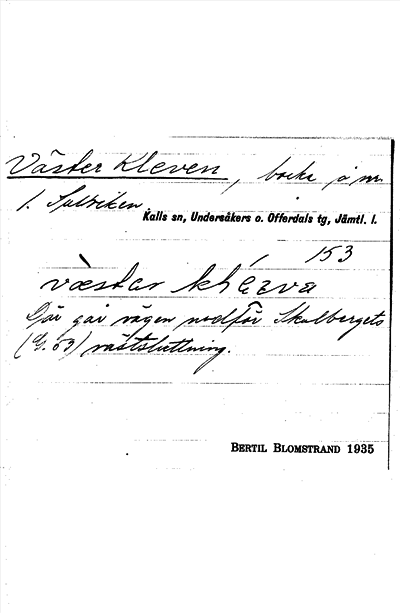 Väster Kleven, backe å nr
1. Sulviken.
Kalls sn, Undersåkers o. Offerdals tg, Jämtl. l.
153
väster
Där går vägen nedför Skalbergets
västsluttning.
BERTIL BLOMSTRAND 1935